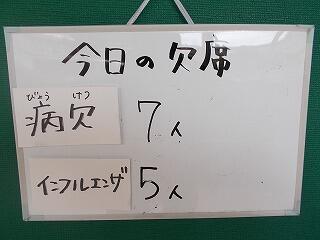 今日の欠席
びょう けつ
病欠 7人
インフルエンザ 5人